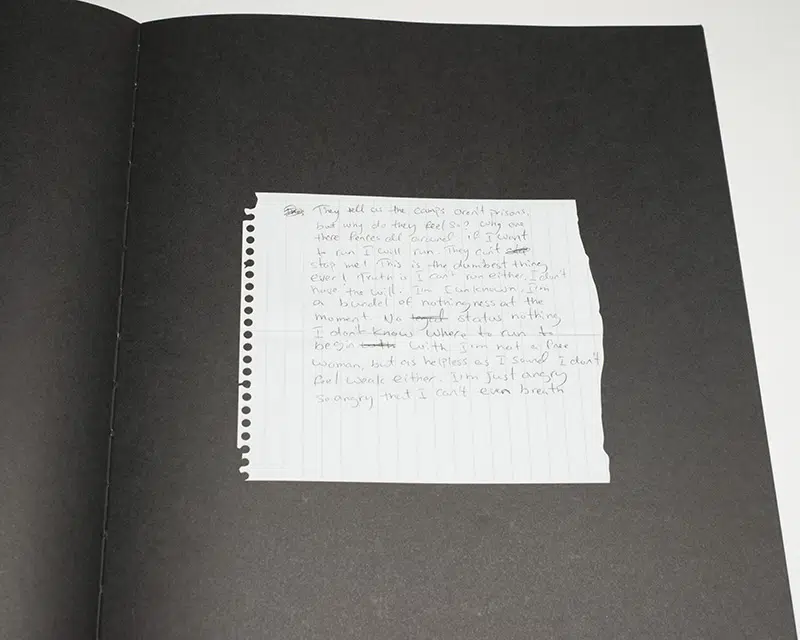 They tell us the camps aren't prisons,
but why do they feel so? Why are
there fences all around if I want
to run I will run. They can't
stop me! This is the dumbest thing
ever! Truth is I can't run either. I don't
have the will. I'm I unknown. I'm
a bundel of nothingness at the
moment. No status nothing
I don't know where to run to
begin with. I'm not a free
woman, but as helpless as I sound I don't
feel weak either. I'm just angry
so angry that I can't even breath